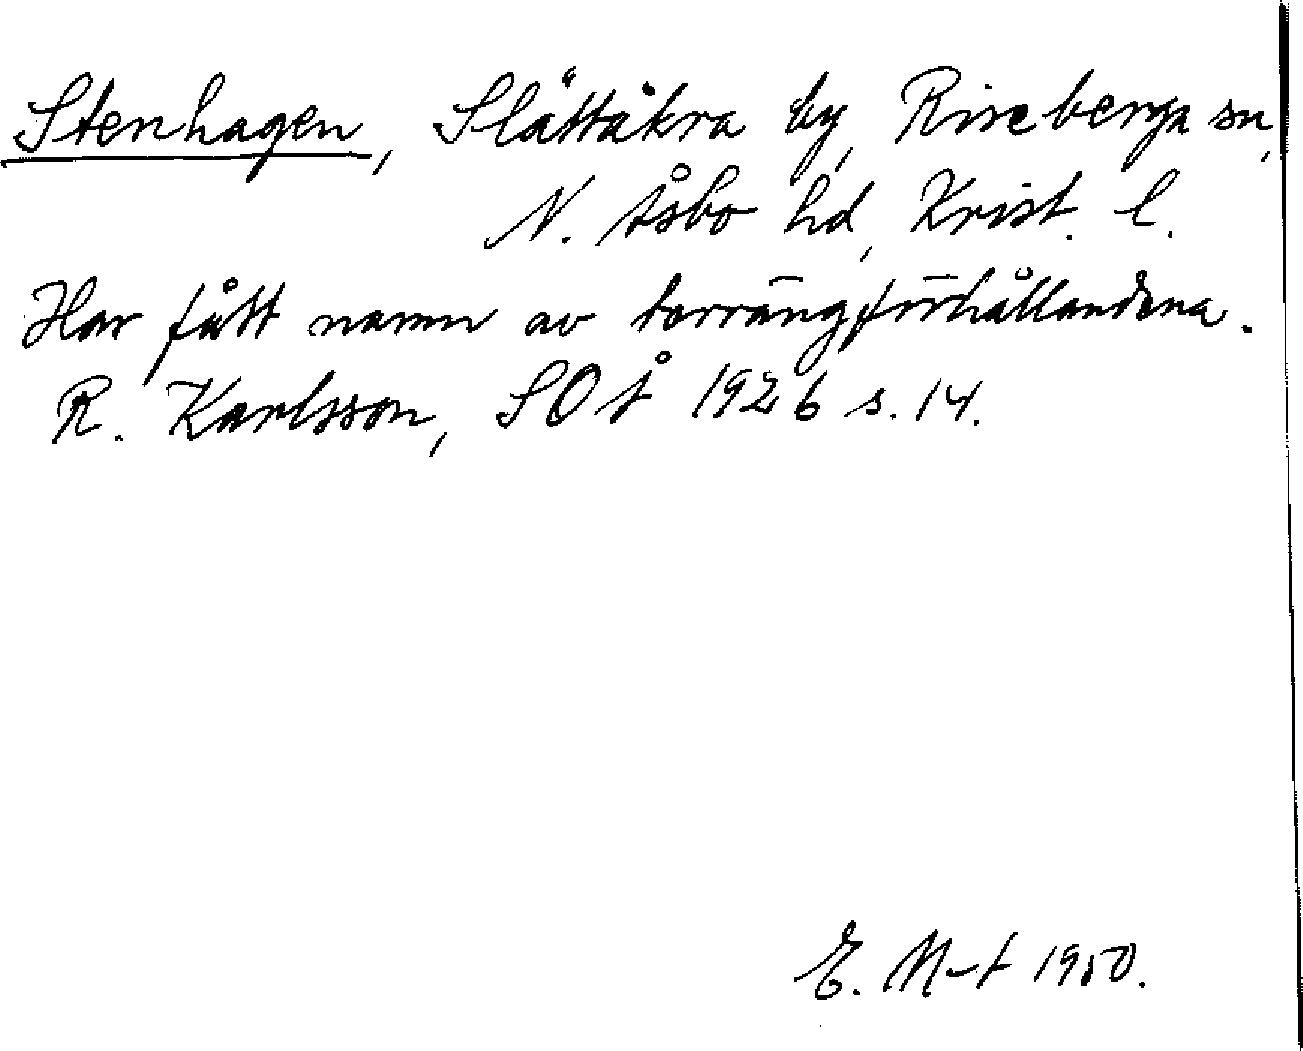 Stenhagen, Slättåkra by, Riseberga sn,
N. Åsbo hd, Krist. l.
Har fått namn av terrängförhållandena.
R. Karlsson, SOÅ 1926 s. 14.
E. M-t 1950.